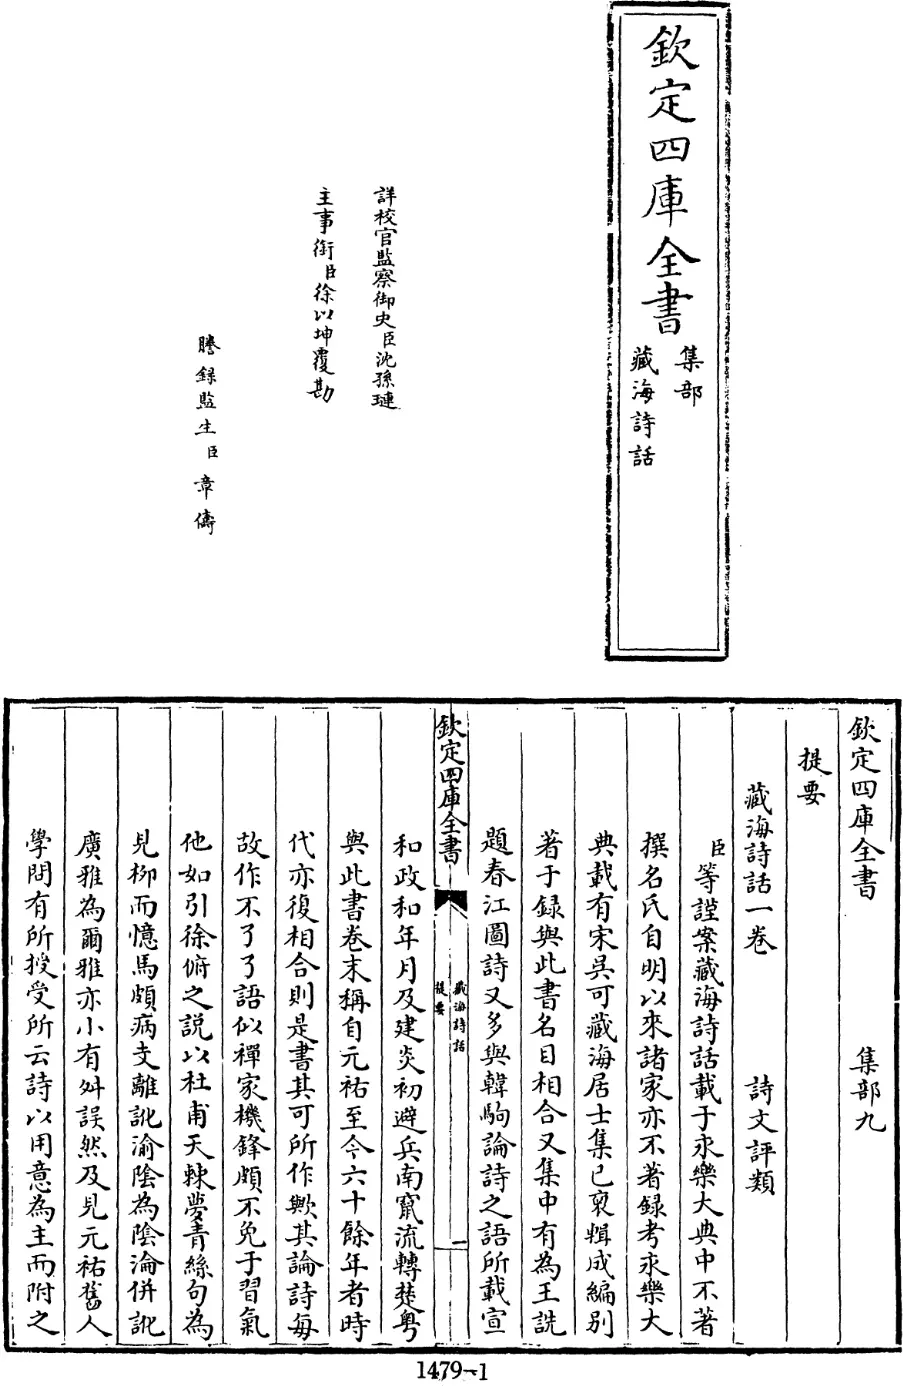 欽定四庫全書
集部
藏海詩話
詳校官監察御史臣沈孫璉
主事銜臣徐以坤覆勘
謄錄監生臣章儔
欽定四庫全書 集部九
提要
藏海詩話一卷 詩文評類
臣等謹案藏海詩話載于永樂大典中不著
撰名氏自明以來諸家亦不著録考永樂大
典載有宋吳可藏海居士集已裒輯成編别
著于録與此書名目相合又集中有為王詵
題春江圖詩又多與韓駒論詩之語所載宣
欽定四庫全書
藏海詩話
提要
一
和政和年月及建炎初避兵南竄流轉楚粤
與此書卷末稱自元祐至今六十餘年者時
代亦復相合則是書其可所作歟其論詩每
故作不了了語似禪家機鋒頗不免于習氣
他如引徐俯之説以杜甫天棘夢青絲句為
見柳而憶馬頗病支離訛渝陰為陰淪併訛
廣雅為爾雅亦小有舛誤然及見元祐舊人
學問有所授受所云詩以用意為主而附之
1479-1